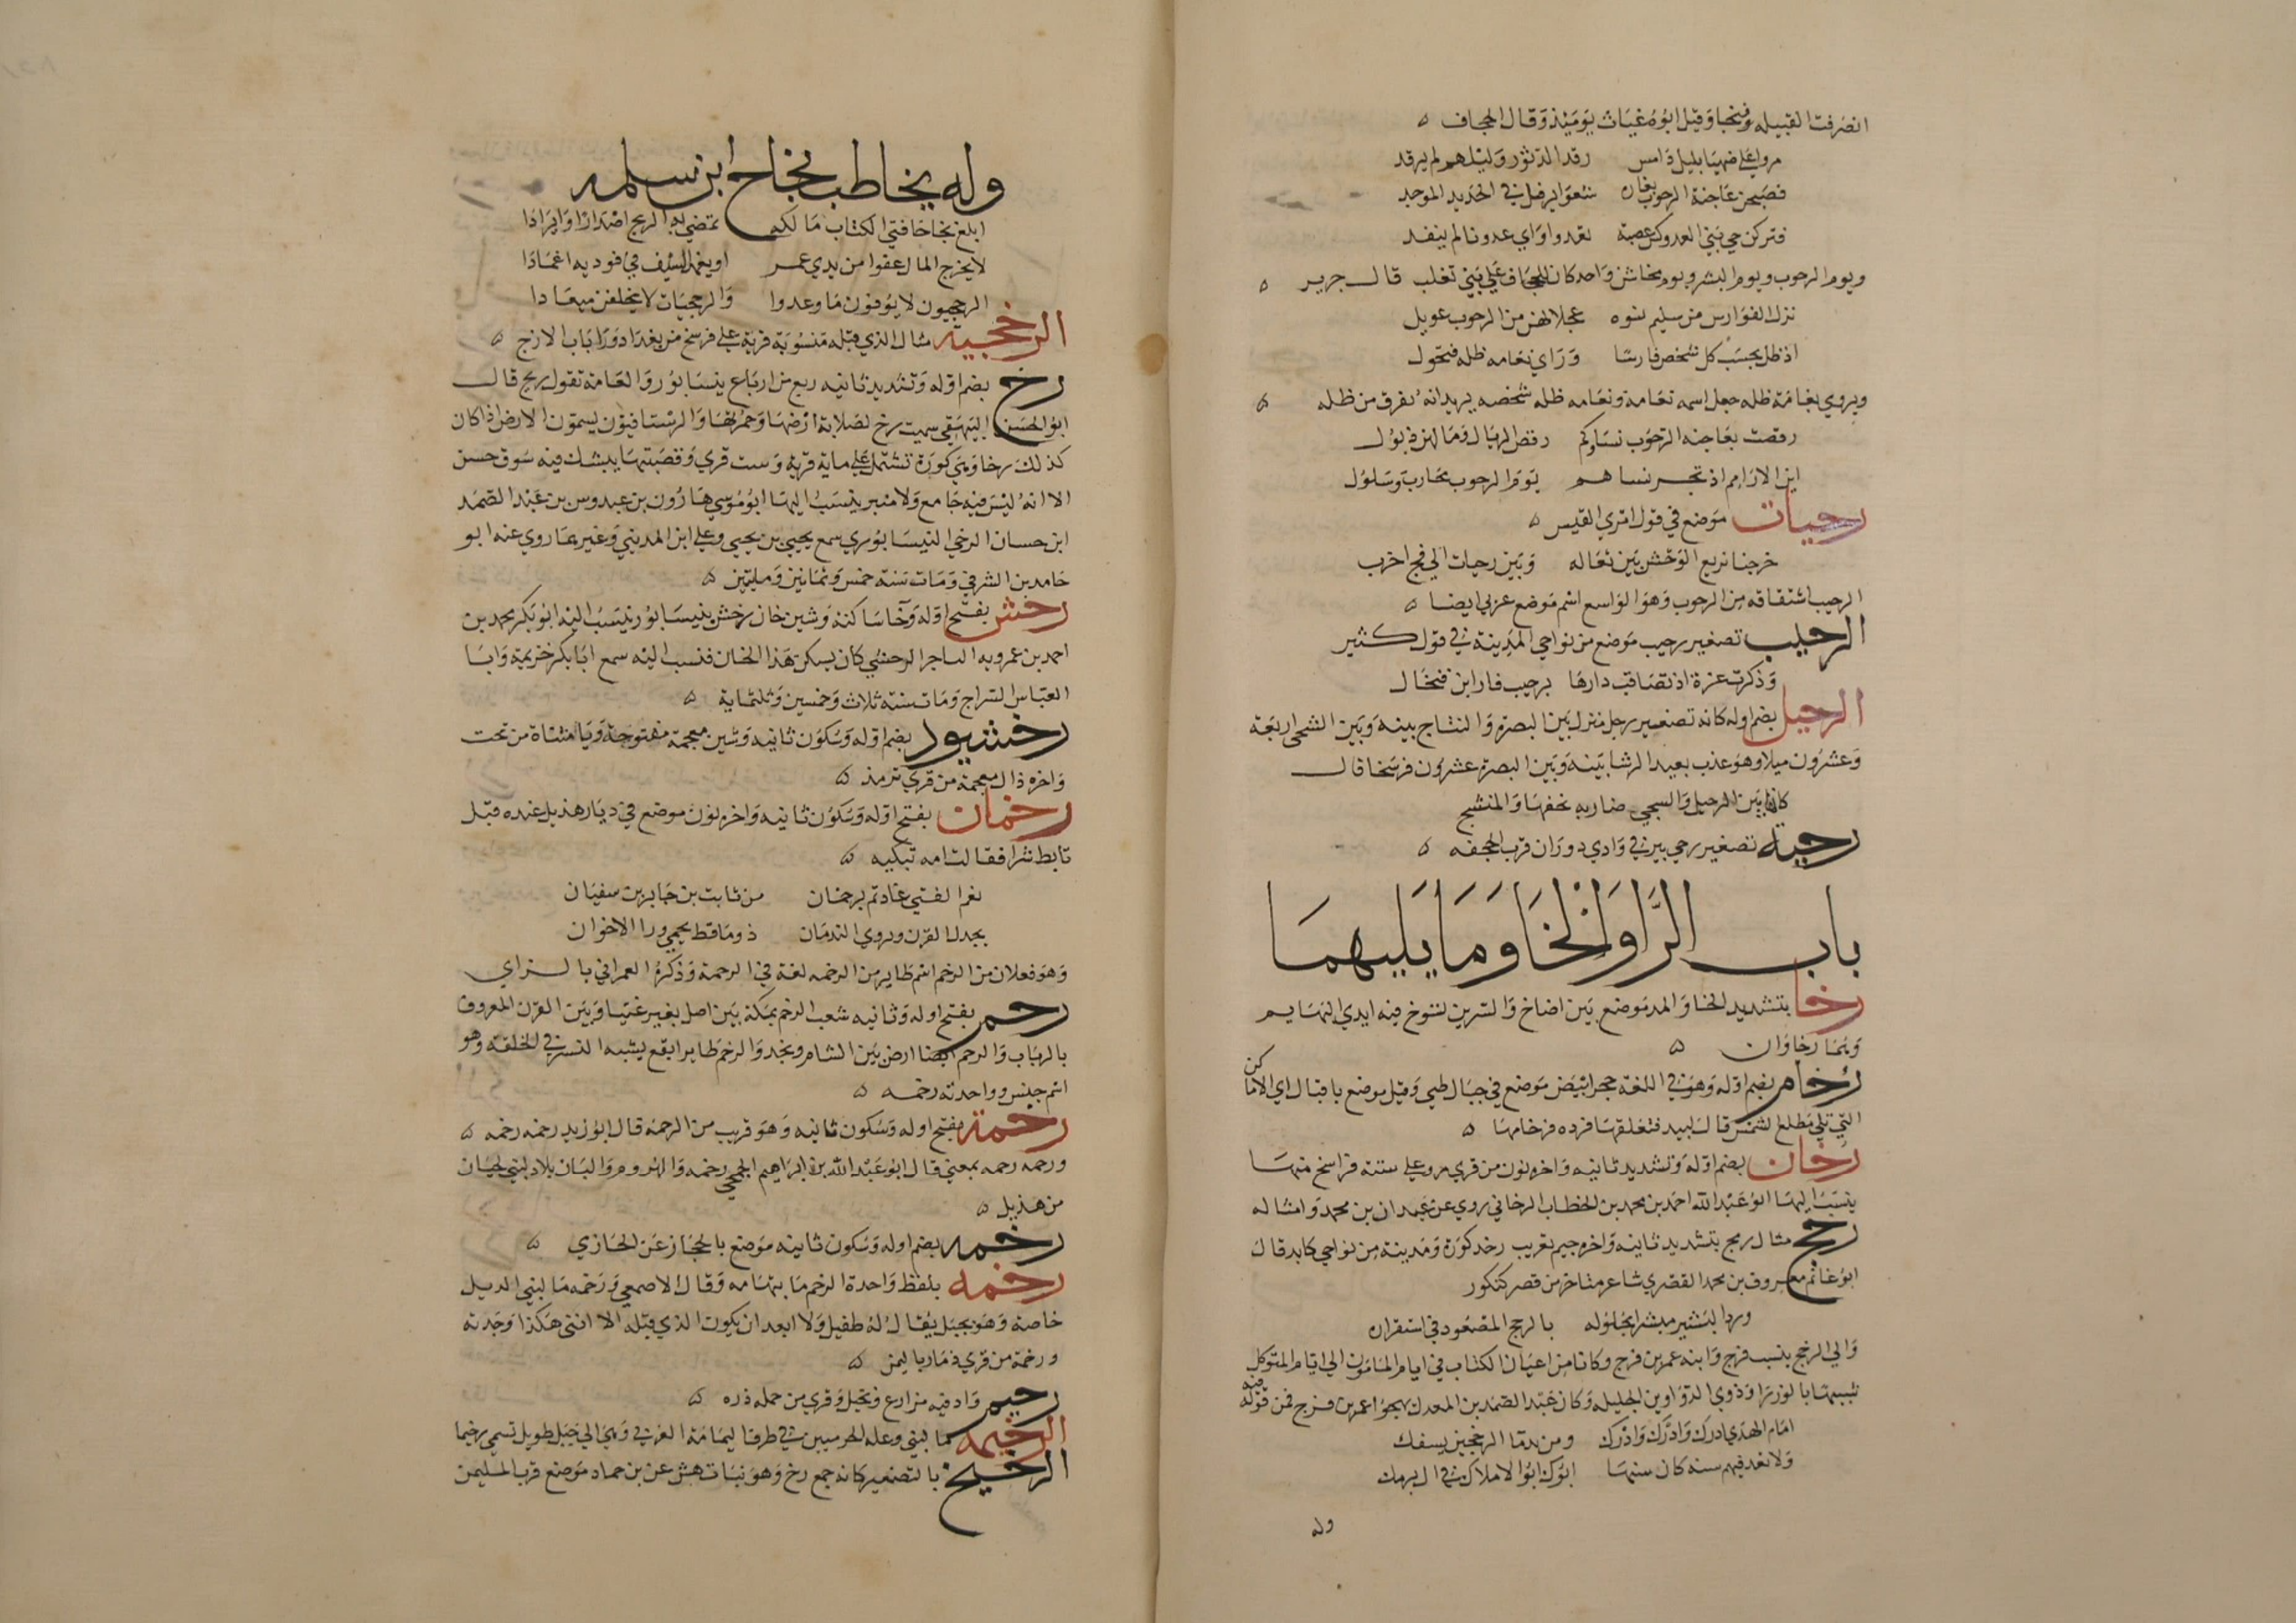 انصرفت القبيله وفتخا وقيل ابوه غياث يوميذ وقال الجحاف
مروا على ضهيا بليل دامس رقد الدثور وليلهم لم يرقد
فصبحن عاجنة الرحوب بغارة شعوا يرفل في الحديد الموجد
فتركن حي بني العدوكس عصبة نفدوا واي عدونا لم ينفد
ويوم الرحوب ويوم البشر ويوم مخاشن واحد كان للجحاف على بني تغلب قال جرير
نزل الفوارس من سليم نسوه عجلا لهن من الرحوب عويل
اذ ظل يحسب كل شخص فارسا وراي نعامه ظله فتحول
ويروي نعامة ظله جعل اسمه نعامة ونعامه ظله شخصه يريد انه يفرق من ظله
رقصت بعاجنه الرحوب نساوكم رقص الريال وما لهن ذيول
اين الاراقم اذ تجر نساهم يوم الرحوب محارب وسلول
رحيات موضع في قول امري القيس
خرجنا نريع الوحش بين ثعاله وبين رحيات الي فج اخرب
الرحيب اشتقاقه من الرحوب وهو الواسع اسم موضع عربي ايضا
الرحيب تصغير رحيب موضع من نواحي المدينة في قول كثير
وذكرت عزة اذ تصاقب دارها برحيب فارابن فنخال
الرحيل بضم اوله كانه تصغير رحل منزل بين البصره والنتاج بينه وبين الشجي اربعة
وعشرون ميلا وهو عذب بعيد الرشا بينه وبين البصرة عشرون فرسخا قال
كانها بين الرحيل والشجي ضاربه بخفها والمنسج
رحية تصغير رحي بير في وادي دوران قرب الجحفه
باب الرا والخا وما يليهما
رخا بتشديد الخا والمد موضع بين اضاخ والسرين تسوخ فيه ايدي البهايم
وهما رخاوان
رخام بضم اوله وهو في اللغة حجر ابيض موضع في جبال طي وقيل موضع باقبال اي الاماكن
التي تلي مطلع الشمس قال لبيد فتعلقها فرده فرخامها
رخان بضم اوله وتشديد ثانيه واخره نون من قري مرو علي ستة فراسخ منها
ينسب اليها ابو عبد الله احمد بن محمد بن الخطاب الرخاني روي عن عبدان بن محمد وامثاله
رخج مثال ربح بتشديد ثانيه واخره جيم تعريب رخد كورة ومدينة من نواحي كابد قال
ابو غانم معروف بن محمد القصري شاعر متاخر من قصر كنكور
ورد البشير مبشرا بحلوله بالرخج المصعود في استقراره
والي الرخج ينسب فرج وابنه عمر بن فرج وكانا من اعيان الكتاب في ايام المامون الي ايام المتوكل
شبيها بالوزرا وذوي الدواوين الجليله وكان عبد الصمد بن المعدل يهجوا عمر بن فرج فمن قوله فيه
امام الهدي ادرك وادرك وادرك ومن بدما الرخجيين يسفك
ولا تعد فيهم سنه كان سنها ابوك ابوا الاملاك في ال برمك
وله
وله يخاطب نجاح ابن سلمه
ابلغ نجاحا فتي الكتاب مالكه تمضي بها الريح اصدارا وايرادا
لا يخرج المال عفوا من يدي عمر او يغمد السيف في فوديه اغمادا
الرخجيون لا يوفون ما وعدوا والرخجيات لا يخلفن ميعادا
الرخجية مثال الذي قبله منسوبة قرية علي فرسخ من بغداد ورا باب الازج
رخ بضم اوله وتشديد ثانيه ربع من ارباع نيسابور والعامة تقول ريج قال
ابو الحسن البيهقي سميت رخ لصلابة ارضها وحمرتها والرستاقيون يسمون الارض اذا كان
كذلك رخا وهي كورة تشتمل علي ماية قرية وست قري وقصبتها بيشك فيه سوق حسن
الا انه ليس فيه جامع ولا منبر ينسب اليها ابو موسي هارون بن عبدوس بن عبد الصمد
ابن حسان الرخي النيسابوري سمع يحيي بن يحيي وعلي ابن المديني وغيرهما روي عنه ابو
حامد بن الشرقي ومات سنة خمس وثمانين ومايتين
رخش بفتح اوله وخا ساكنه وشين خان رخش بنيسابور ينسب اليه ابو بكر محمد بن
احمد بن عمرويه التاجر الرخشي كان يسكن هذا الخان فنسب اليه سمع ابا بكر خزيمة وابا
العباس السراج ومات سنة ثلاث وخمسين وثلثماية
رخشيود بضم اوله وسكون ثانيه وشين معجمة مفتوحة ويا مثناة من تحت
واخره ذال معجمة من قري ترمذ
رخمان بفتح اوله وسكون ثانيه واخره نون موضع في ديار هذيل عنده قتل
تابط شرا فقالت امه تبكيه
نعم الفتي غادرتم برخمان من ثابت بن جابر بن سفيان
يجدل القرن ويروي الندمان ذو ماقط يحمي ورا الاخوان
وهو فعلان من الرخم اسم طاير من الرخمه لغة في الرحمة وذكره العمراني بالزاي
رخم بفتح اوله وثانيه شعب الرخم بمكة بين اصل بغير غنيا وبين القرن المعروف
بالرباب والرخم ايضا ارض بين الشام ونجد والرخم طاير ابقع يشبه النسر في الخلقة وهو
اسم جنس وواحدته رخمه
رخمة بفتح اوله وسكون ثانيه وهو قريب من الرحمة قال ابو زيد رخمه رخمه
ورحمه رحمه بمعني قال ابو عبد الله بن ابراهيم الجمحي رخمه والهروم والبان بلاد لبني لحيان
من هذيل
رخمه بضم اوله وسكون ثانيه موضع بالحجاز عن الحازي
رخمه بلفظ واحدة الرخم ما بتهامه وقال الاصمعي ورخمه ما لبني الديل
خاصة وهو بجبل يقال له طفيل ولا ابعد ان يكون الذي قبله الا انني هكذا وجدته
ورخمة من قري ذمار باليمن
رخيم واد فيه مزارع ونخيل وقري من جمله ذره
الرخيمه ما لبني وعله الجرميين في طرف اليمامة الغربي وهي الي جبل طويل تسمي رخيما
الرخيخ بالتصغير كانه جمع رخ وهو نبات هش عن بن حماد موضع قرب المسلمين